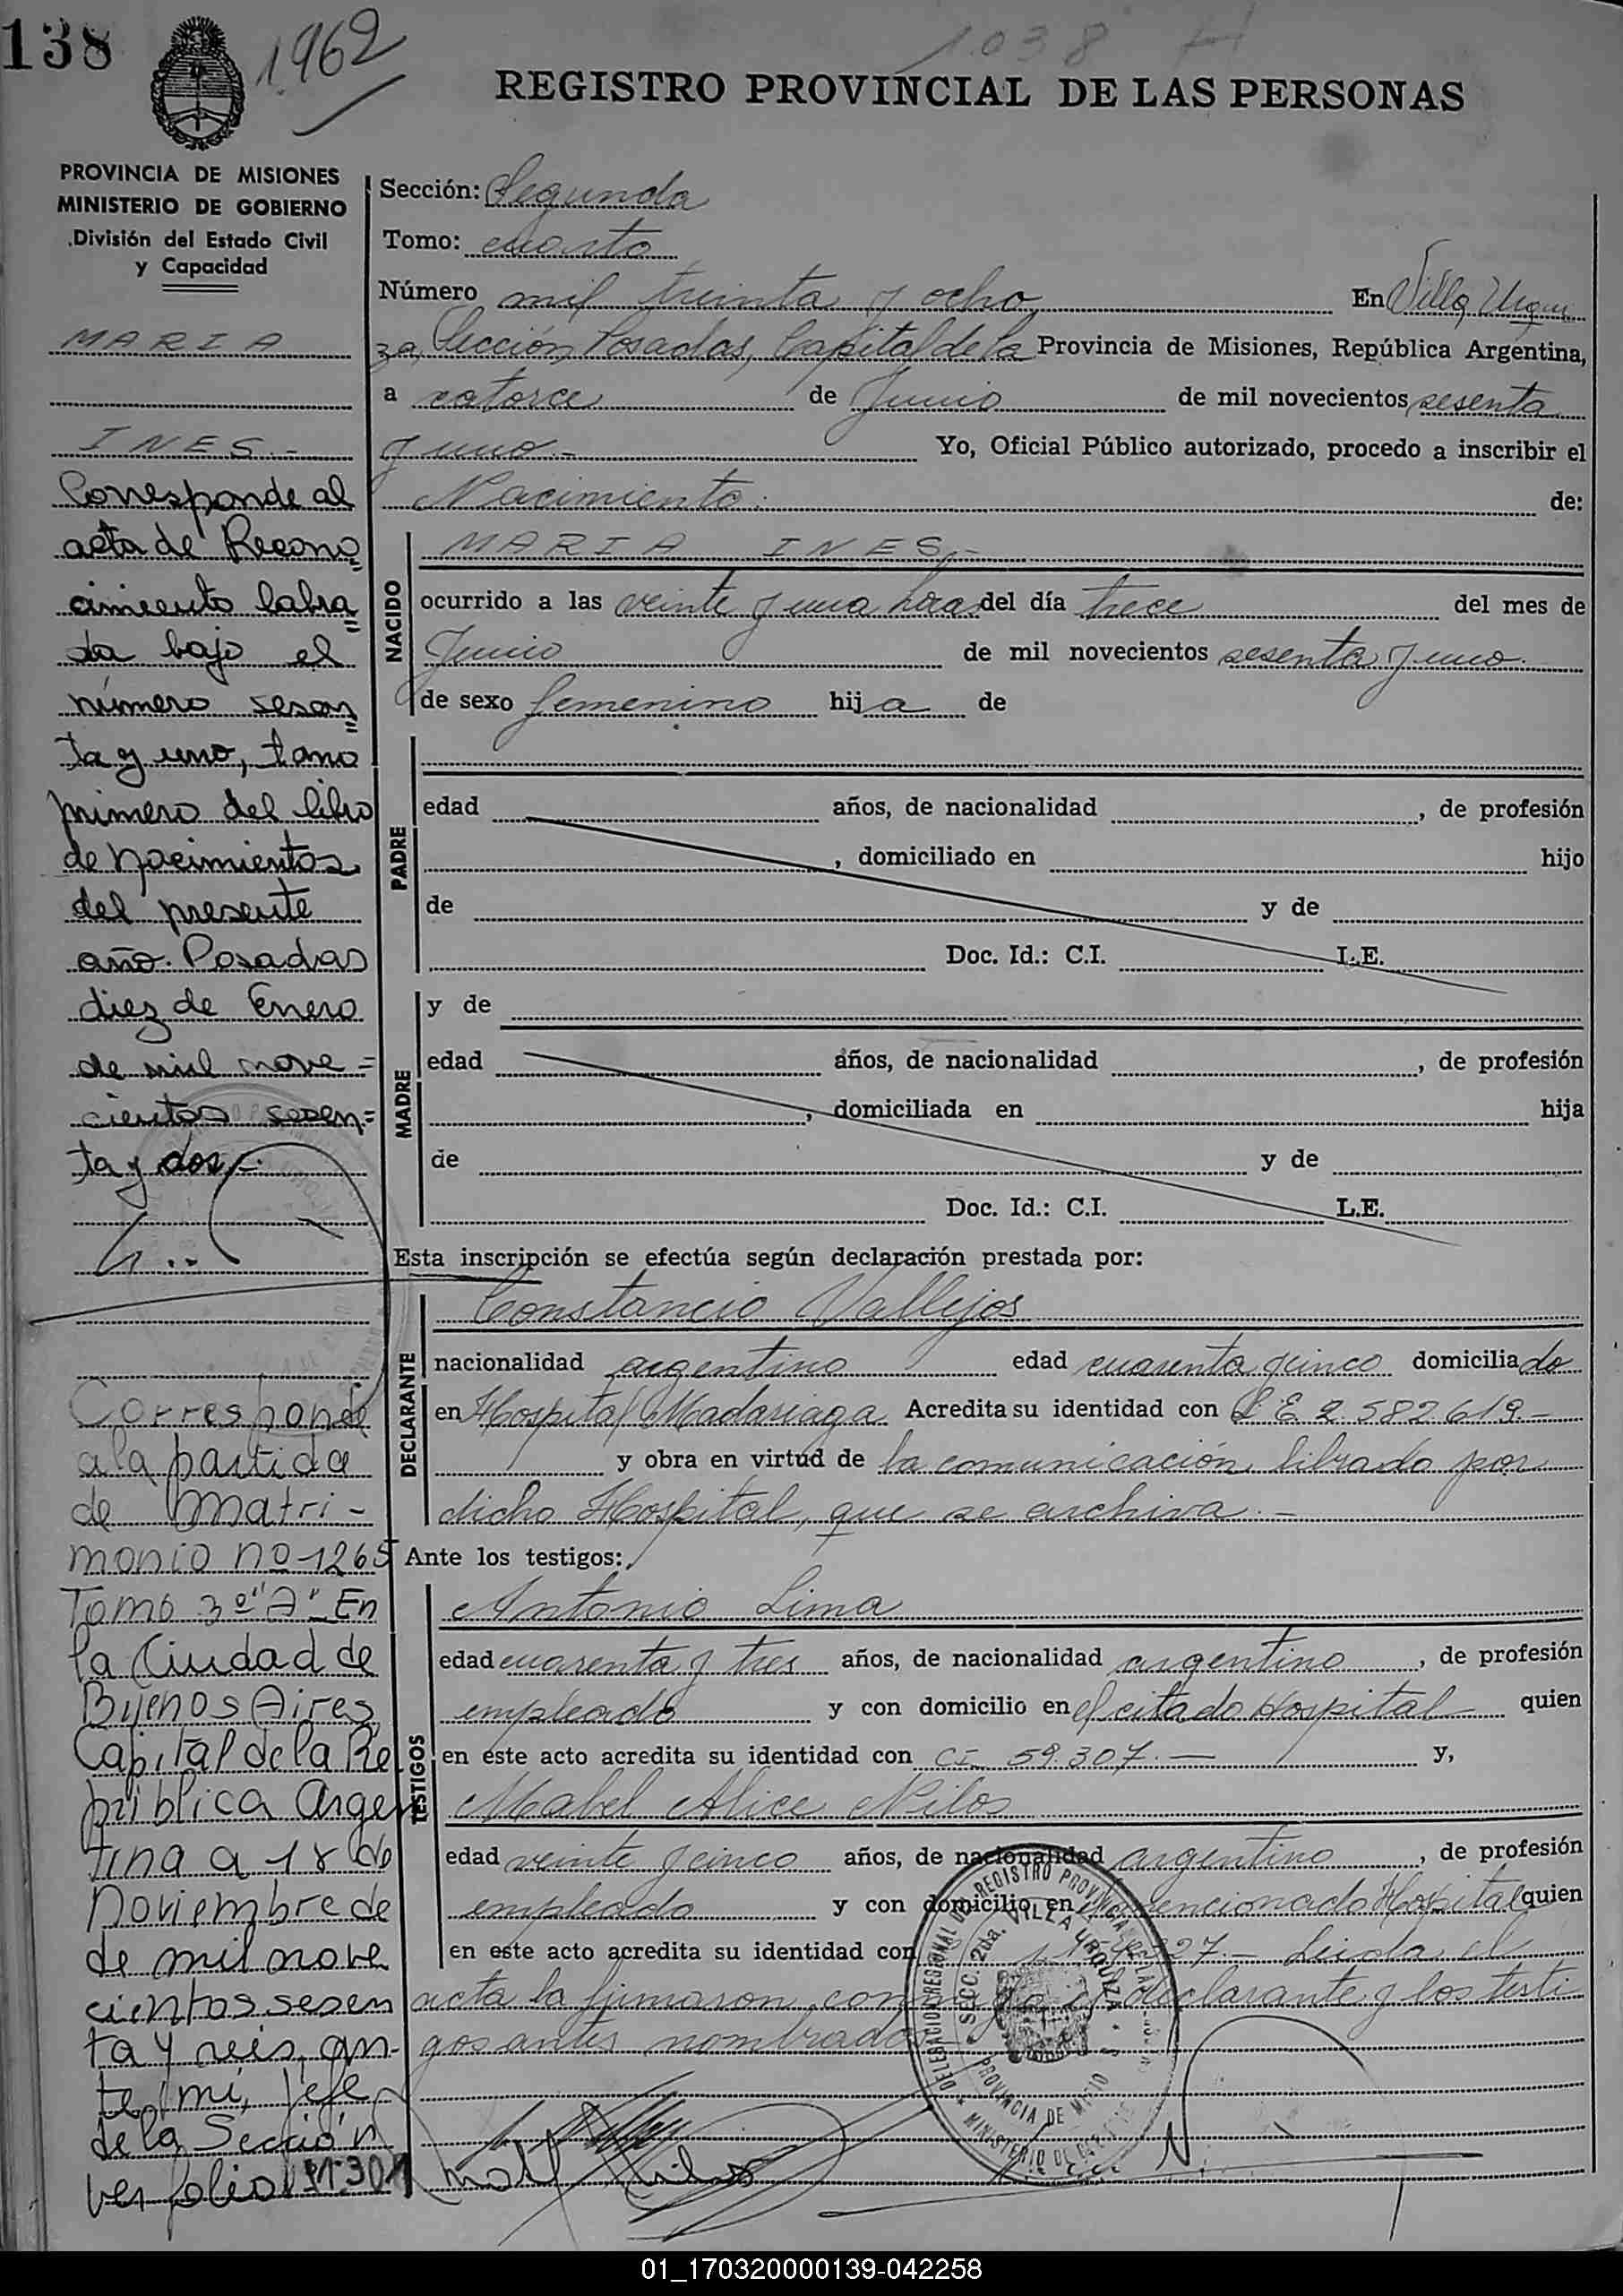 138
1962
1.038 H
REGISTRO PROVINCIAL DE LAS PERSONAS
PROVINCIA DE MISIONES
MINISTERIO DE GOBIERNO
División del Estado Civil
y Capacidad
MARIA
INES.-
Corresponde al
acta de Recono
cimiento labra
da bajo el
número sesen
ta y uno, tomo
primero del libro
de Nacimientos
del presente
año. Posadas
diez de Enero
de mil nove=
cientos sesen=
ta y dos.-
Corresponde
a la partida
de Matri-
monio nº 1265
Tomo 3º "A" En
la Ciudad de
Buenos Aires
Capital de la Re
pública Argen
tina a 18 de
Noviembre de
de mil nove
cientos sesen
ta y seis, an-
te mí, Jefe
de la Sección
ver folio 301
Sección: Segunda
Tomo: cuarto
Número mil treinta y ocho En Villa Urqui
za, Sección Posadas, Capital de la Provincia de Misiones, República Argentina,
a catorce de Junio de mil novecientos sesenta
y uno.- Yo, Oficial Público autorizado, procedo a inscribir el
Nacimiento. de:
NACIDO
MARIA INES.-
ocurrido a las veinte y una hora del día trece del mes de
Junio de mil novecientos sesenta y uno.
de sexo femenino hija de
PADRE
edad años, de nacionalidad , de profesión
, domiciliado en hijo
de y de
Doc. Id.: C.I. L.E.
MADRE
y de
edad años, de nacionalidad , de profesión
, domiciliada en hija
de y de
Doc. Id.: C.I. L.E.
Esta inscripción se efectúa según declaración prestada por:
DECLARANTE
Constancio Vallejos
nacionalidad argentino edad cuarenta y cinco domiciliado
en Hospital Madariaga Acredita su identidad con L E 2.582.619.-
y obra en virtud de la comunicación librado por
dicho Hospital, que se archiva.-
Ante los testigos:
TESTIGOS
Antonio Lima
edad cuarenta y tres años, de nacionalidad argentino, de profesión
empleado y con domicilio en el citado Hospital quien
en este acto acredita su identidad con CI 59.307.- y,
Mabel Alice Nilos
edad veinte y cinco años, de nacionalidad argentino, de profesión
empleado y con domicilio en mencionado Hospital quien
en este acto acredita su identidad con 27.- Leida el
acta la firmaron conmigo el declarante y los testi
gos antes nombrados
DELEGACION REGIONAL DEL REGISTRO PROVINCIAL DE LAS
SECC. 2da. VILLA URQUIZA
PROVINCIA DE MISIONES
MINISTERIO DE GOBIERNO
01_170320000139-042258